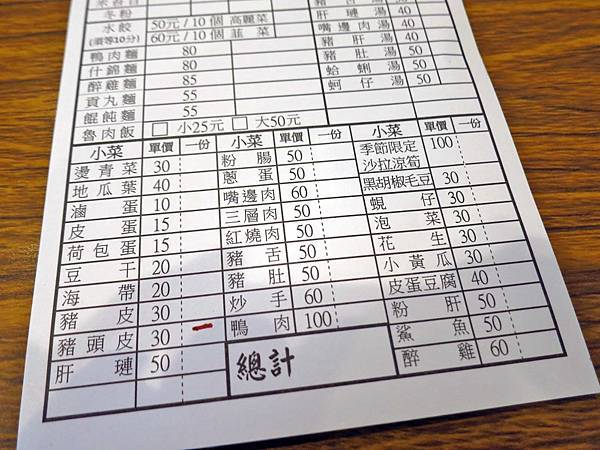 冬粉
水餃 50元/10個 高麗菜
(須等10分) 60元/10個 韮菜
鴨肉麵 80
什錦麵 80
醉雞麵 85
貢丸麵 55
餛飩麵 55
魯肉飯 □ 小25元 □ 大50元
肝嗹湯 40
嘴邊肉湯 40
豬肝湯 40
豬肚湯 50
蛤蜊湯 50
蚵仔湯 50
小菜 單價 一份
燙青菜 30
地瓜葉 40
滷蛋 10
皮蛋 15
荷包蛋 15
豆干 20
海帶 20
豬皮 30
豬頭皮 30 一
肝嗹 50
小菜 單價 一份
粉腸 50
蔥蛋 50
嘴邊肉 60
三層肉 50
紅燒肉 50
豬舌 50
豬肚 50
炒手 60
鴨肉 100
總計
小菜 單價 一份
季節限定 100
沙拉涼筍
黑胡椒毛豆 30
蜆仔 30
泡菜 30
花生 30
小黃瓜 30
皮蛋豆腐 40
粉肝 50
鯊魚 50
醉雞 60